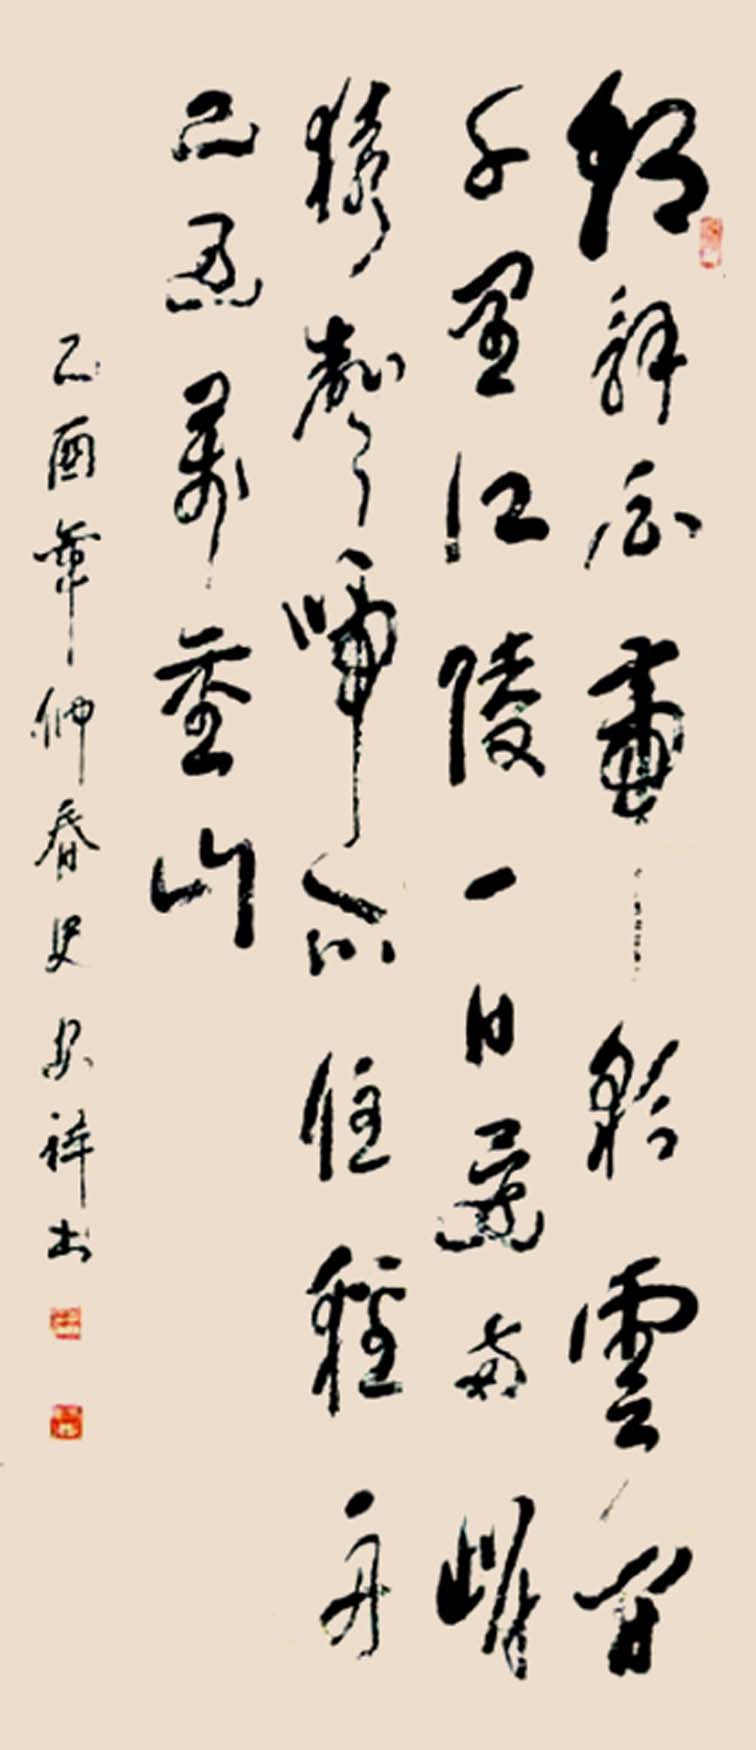 朝辭白帝彩雲間
千里江陵一日還兩岸
猿聲啼不住輕舟
已過萬重山
乙酉年仲春史安祥书